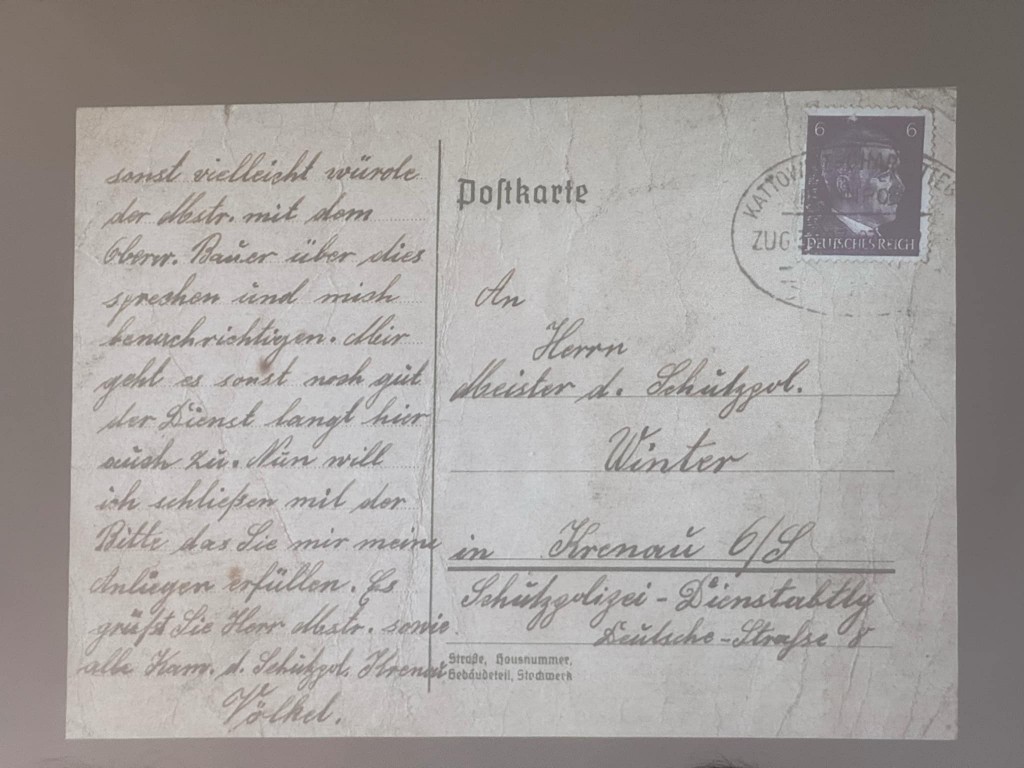 sonst vielleicht würde
der Mstr. mit dem
Oberw. Bauer über dies
sprechen und mich
benachrichtigen. Mir
geht es sonst noch gut
der Dienst langt hier
auch zu. Nun will
ich schließen mit der
Bitte das Sie mir meine
Anliegen erfüllen. Es
grüßt Sie Herr Mstr. sowie
alle Kam. d. Schutzpol. Krenau
Völkel.
Postkarte
6 6
KATTOWI
ZUG
DEUTSCHES REICH
An
Herrn
Meister d. Schutzpol.
Winter
in Krenau O/S
Schutzpolizei-Dienstabtlg
Deutsche-Strafse 8
Straße, Hausnummer,
Gebäudeteil, Stockwerk